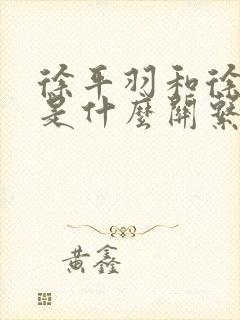 徐平羽和徐
是什麼關繫
黃鑫